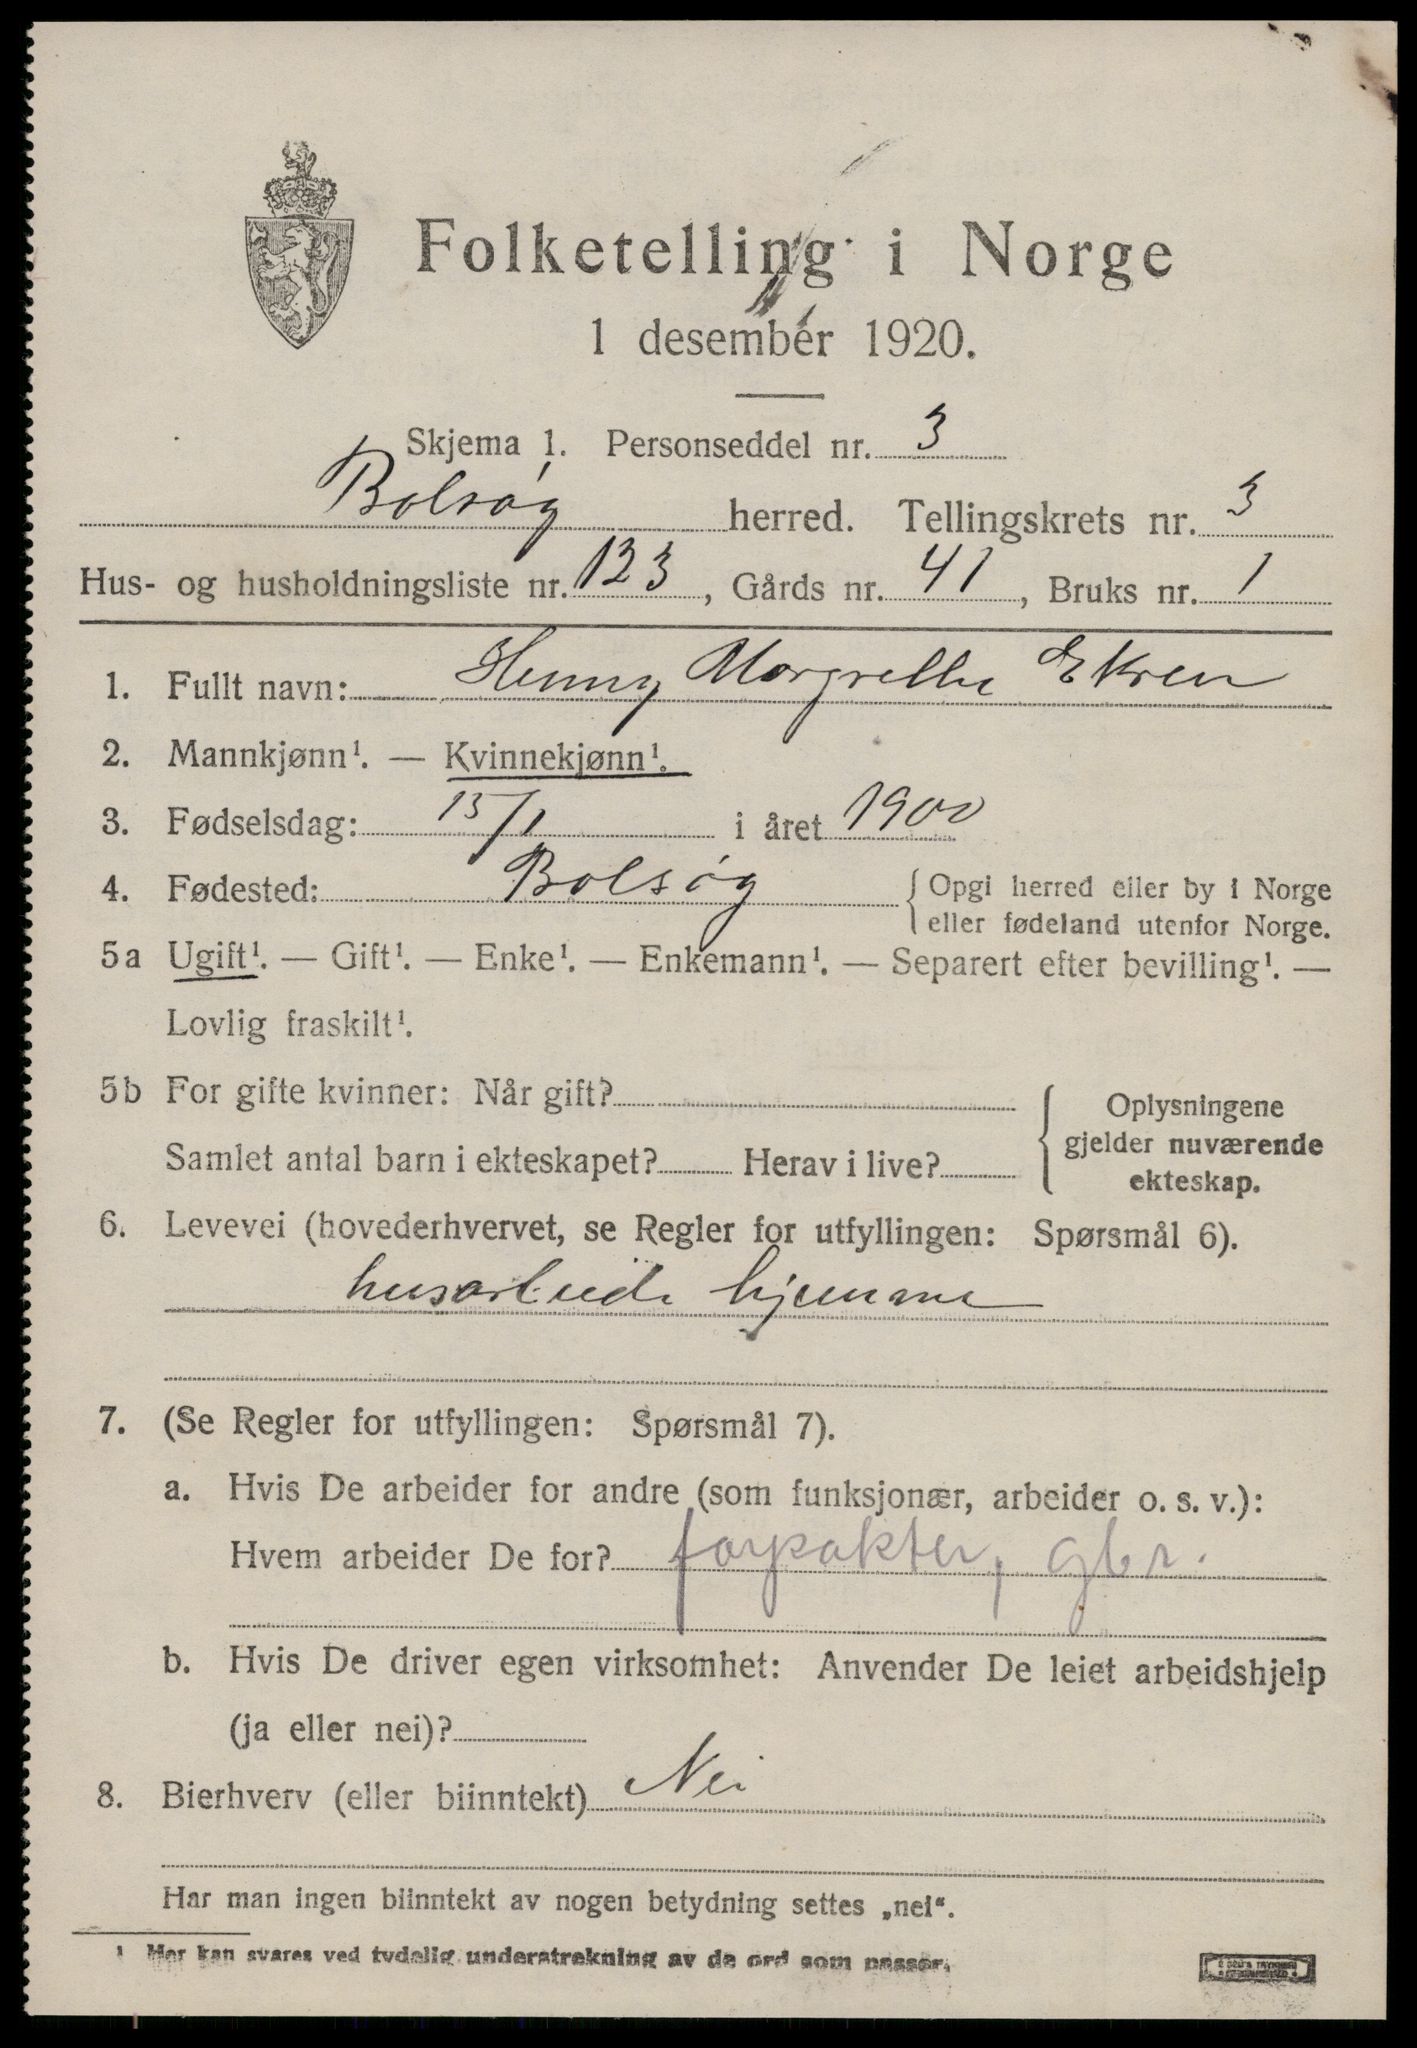 Folketelling i Norge
1 desember 1920.
Skjema 1. Personseddel nr. 3
Bolsøy herred. Tellingskrets nr. 3
Hus- og husholdningsliste nr. 123, Gårds nr. 41, Bruks nr. 1
1. Fullt navn: Henny Margrethe Ekren
2. Mannkjønn¹. — Kvinnekjønn¹.
3. Fødselsdag: 15/1 i året 1900
4. Fødested: Bolsøy { Opgi herred eller by i Norge
eller fødeland utenfor Norge.
5a Ugift¹. — Gift¹. — Enke¹. — Enkemann¹. — Separert efter bevilling¹. —
Lovlig fraskilt¹.
5b For gifte kvinner: Når gift?
Samlet antal barn i ekteskapet? Herav i live?
{ Oplysningene
gjelder nuværende
ekteskap.
6. Levevei (hovederhvervet, se Regler for utfyllingen: Spørsmål 6).
husarbeide hjemme
7. (Se Regler for utfyllingen: Spørsmål 7).
a. Hvis De arbeider for andre (som funksjonær, arbeider o. s. v.):
Hvem arbeider De for? forpakter, gbr.
b. Hvis De driver egen virksomhet: Anvender De leiet arbeidshjelp
(ja eller nei)?
8. Bierhverv (eller biinntekt) Nei
Har man ingen biinntekt av nogen betydning settes „nei“.
¹ Her kan svares ved tydelig understrekning av de ord som passer.